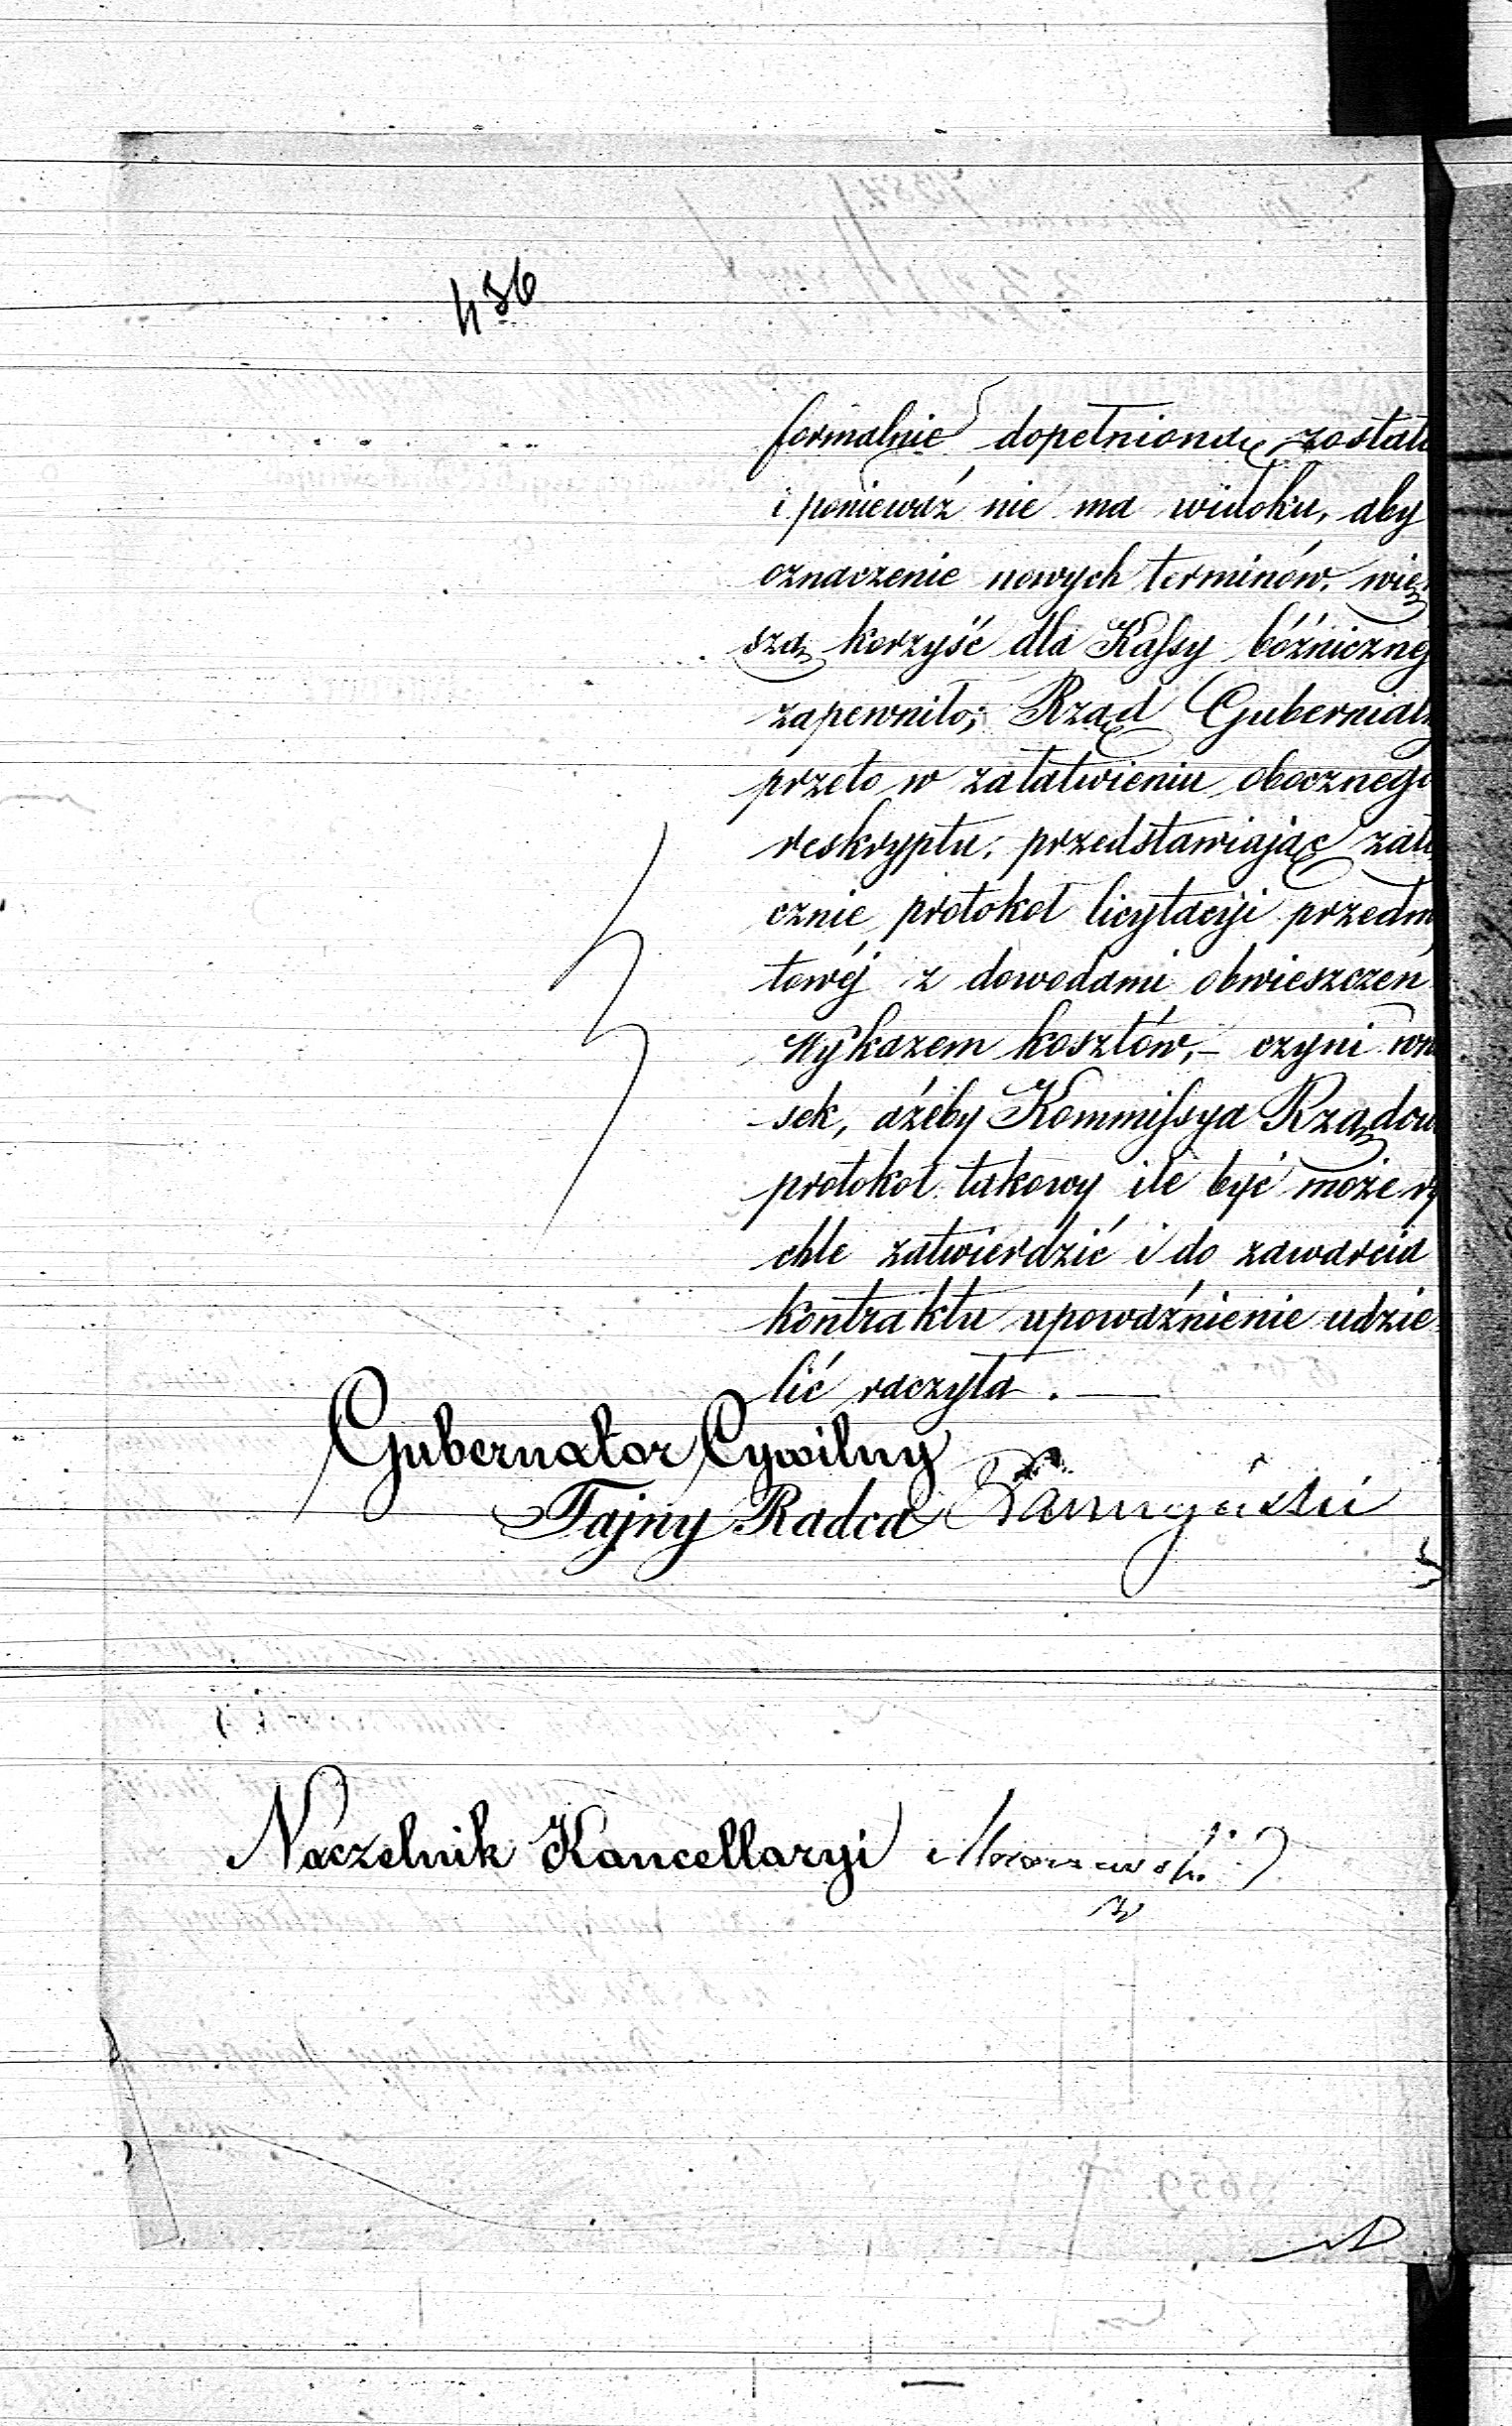 436
formalnie dopełnioną został
i poniewaź nie ma widoku, aby
oznaczenie nowych terminów, wię
szą korzyść dla Kassy bóźnicznej
zapewniło; Rząd Gubernialn
przeto w załatwieniu obocznego
reskryptu, przedstawiając zał
cznie protokół licytacyi przedm
towéj z dowodami obwieszczeń
wykazem kosztów, – czyni wn
sek, ażeby Kommissya Rządow
protokół takowy ile być może ry
chle zatwierdzić i do zawarcia
kontraktu upoważnienie udzie
lić raczyła. —
Gubernator Cywilny
Tajny Radca
Naczelnik Kancellaryi